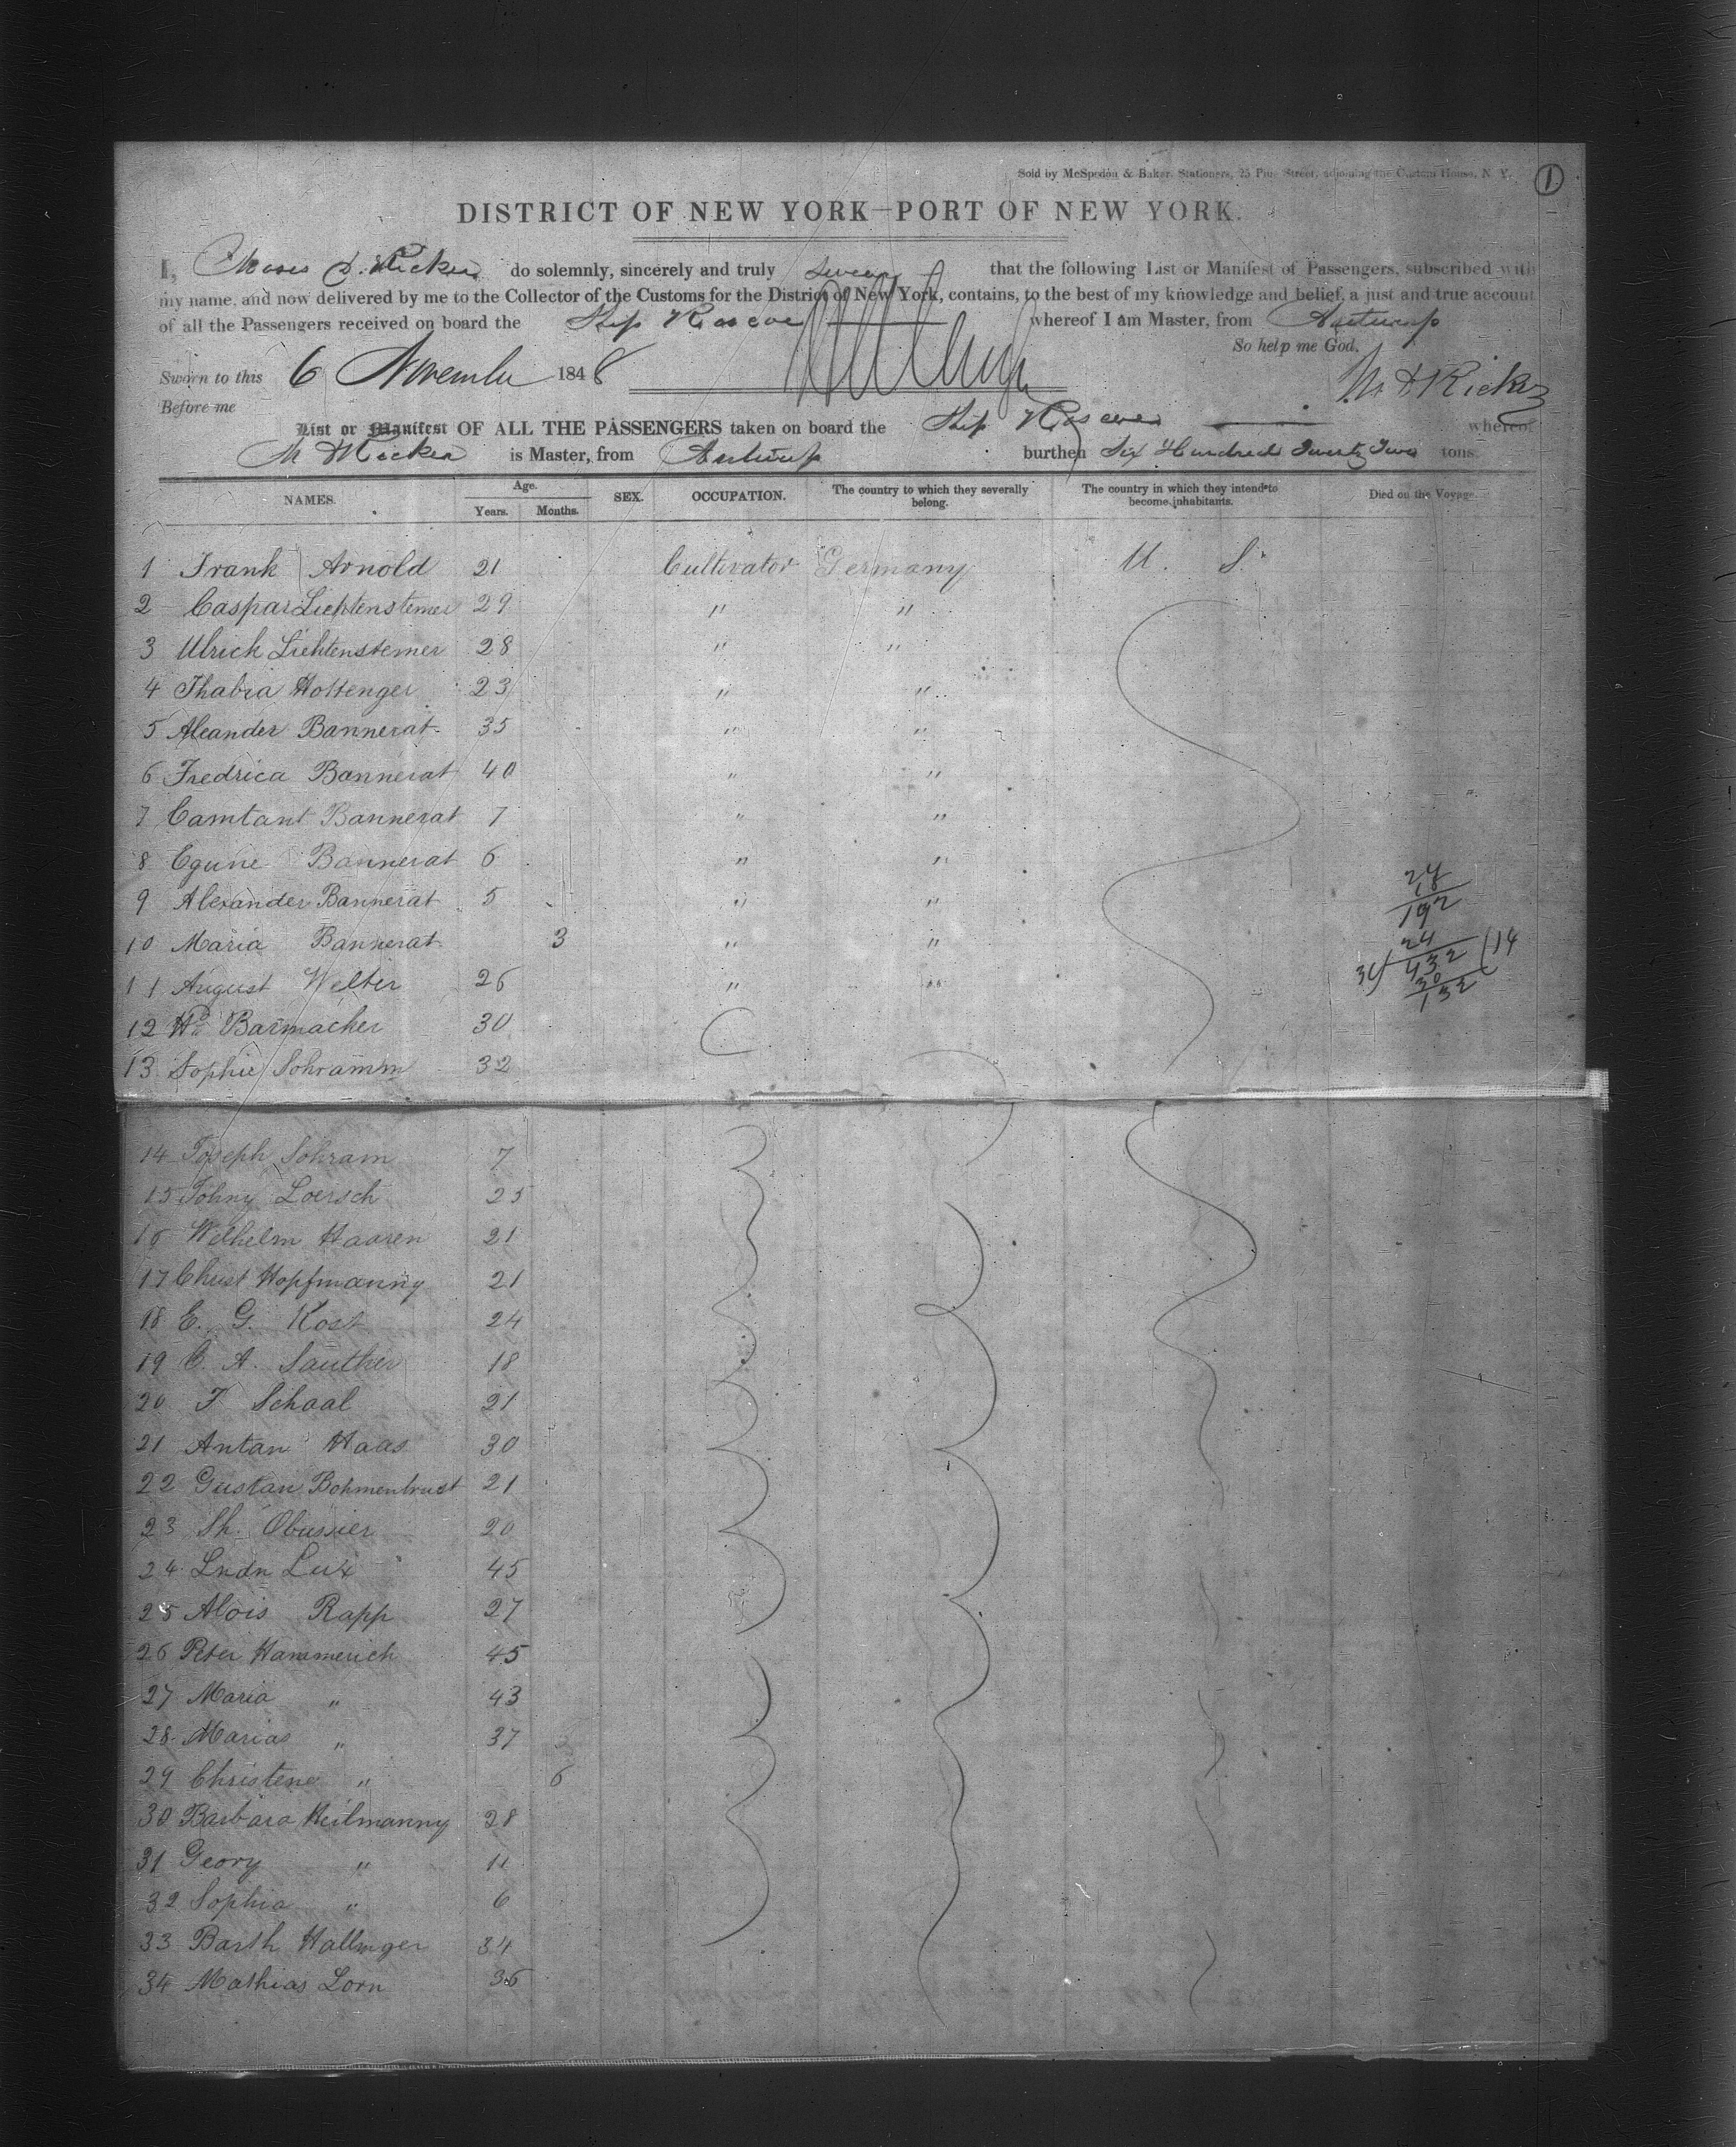 Sold by McSpedon & Baker, Stationers, 25 Pine Street, adjoining the Custom House, N. Y.
1
DISTRICT OF NEW YORK—PORT OF NEW YORK.
I, Moses D. Ricker do solemnly, sincerely and truly swear that the following List or Manifest of Passengers, subscribed with
my name, and now delivered by me to the Collector of the Customs for the District of New York, contains, to the best of my knowledge and belief, a just and true account
of all the Passengers received on board the Ship Roscoe whereof I am Master, from Antwerp
So help me God.
Sworn to this 6 November 1848 M D Ricker
Before me
List or Manifest OF ALL THE PASSENGERS taken on board the Ship Roscoe whereof
M D Ricker is Master, from Antwerp burthen Six Hundred Twenty Two tons.
NAMES. Age. Years. Months. SEX. OCCUPATION. The country to which they severally belong. The country in which they intend to become inhabitants. Died on the Voyage.
1 Frank Arnold 21 Cultivator Germany U. S.
2 Caspar Lichtensteiner 29 " "
3 Ulrick Lichtensteiner 28 " "
4 Thabia Hottenger 23 " "
5 Aleander Bannerat 35 " "
6 Fredrica Bannerat 40 " "
7 Camtant Bannerat 7 " "
8 Egune Bannerat 6 " "
9 Alexander Bannerat 5 " "
10 Maria Bannerat 3 " "
11 August Welter 26 " "
12 Wm Barmacher 30
13 Sophie Sohramm 32
24
192
24
432 14
30
132
14 Joseph Sohram 7
15 Johny Loersch 25
16 Welhelm Haaren 21
17 Chust Hopfmanny 21
18 E. G. Kost 24
19 C. A. Sauther 18
20 F Schaal 21
21 Antan Haas 30
22 Gustan Bohmentrust 21
23 Sh. Obussier 20
24 Lndn Lux 45
25 Alois Rapp 27
26 Peter Hammerich 45
27 Maria " 43
28 Marias " 37
29 Christene " 6
30 Barbara Heilmanny 28
31 Geory " 11
32 Sophia " 6
33 Barth Hallinger 34
34 Mathias Lorn 36